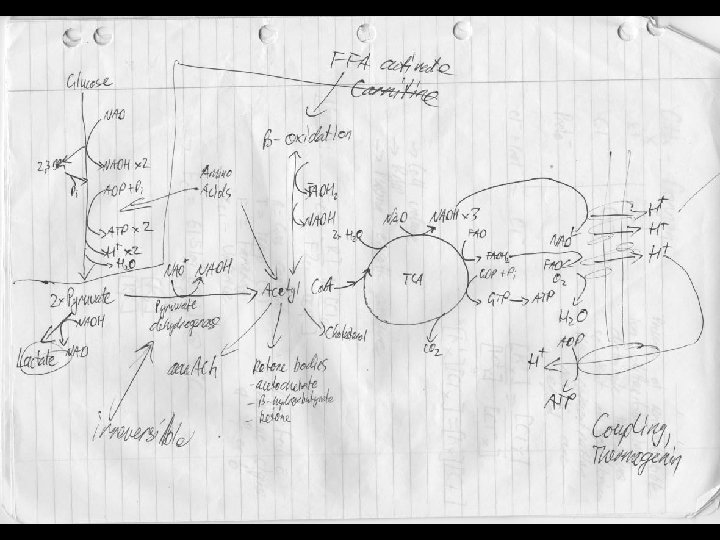 FFA activate
Carnitine
Glucose
NAD
NADH x2
Pi
ADP + Pi
ATP x 2
H⁺ x2
H₂O
Amino
Acids
β-oxidation
FADH₂
NADH
2x H₂O
NAD
NADH x3
FAD
FADH₂
GDP + Pi
GTP → ATP
TCA
CO₂
NAD⁺
FAD
O₂
H₂O
H⁺
H⁺
H⁺
ADP
H⁺
ATP
2x Pyruvate
NAD⁺
NADH
Pyruvate
dehydrogenase
Acetyl CoA
NADH
NAD
Lactate
Cholesterol
Ketone bodies
- acetoacetate
- β-hydroxybutyrate
- ketone
irreversible
Coupling,
Thermogenin